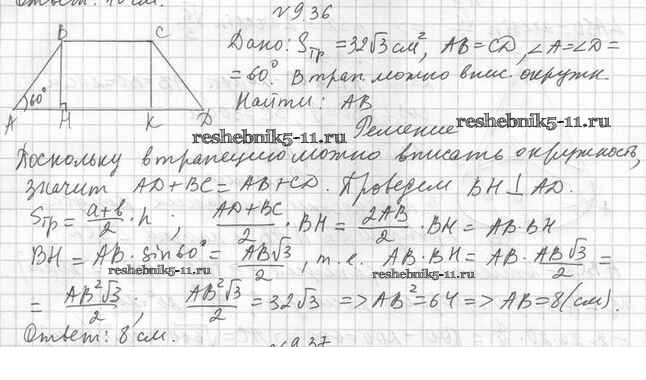 Ответ: 10 см.
№ 9.36
B C
60°
A H K D
Дано: Sтр = 32√3 см², AB = CD, ∠A = ∠D =
= 60°. В трап. можно впис. окружн.
Найти: AB
Решение
reshebnik5-11.ru reshebnik5-11.ru
Поскольку в трапецию можно вписать окружность,
значит AD + BC = AB + CD. Проведем BH ⊥ AD.
Sтр = (a+b)/2 · h ; (AD+BC)/2 · BH = 2AB/2 · BH = AB · BH
BH = AB · sin60° = AB√3/2, т.е. AB · BH = AB · AB√3/2 =
reshebnik5-11.ru reshebnik5-11.ru
= AB²√3/2 ; AB²√3/2 = 32√3 => AB² = 64 => AB = 8(см).
Ответ: 8 см.
№ 9.37